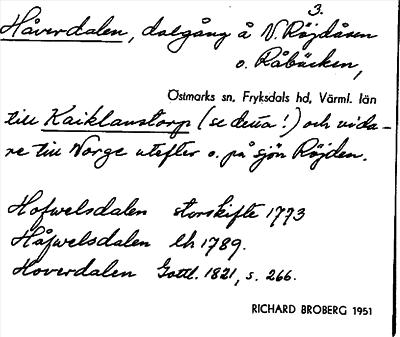 3.
Håverdalen, dalgång å N. Röjdåsen
o. Råbäcken,
Östmarks sn, Fryksdals hd, Värml. län
till Kaiklaustorp (se detta!) och vida-
re till Norge utefter o. på sjön Röjden.
Hofwelsdalen storskifte 1773
Håfwelsdalen lh 1789.
Hoverdalen Gottl. 1821, s. 266.
RICHARD BROBERG 1951